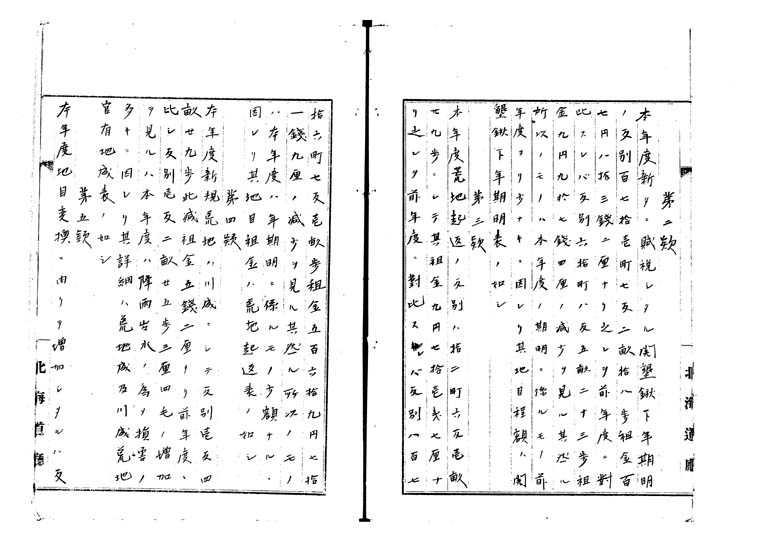 第二款
本年度新タニ賦税シタル開墾鍬下年期明
ノ反別百七拾壱町七反二畝拾八歩租金百
七円八拾三銭二厘ナリ之レヲ前年度ニ対
比スレバ反別六拾町八反五畝二十三歩租
金九円九拾七銭四厘ノ減少ヲ見ル其然ル
所以ノモノハ本年度ノ期明ニ係ルモノ前
年度ヨリ少ナキニ因レリ其地目程額ハ開
墾鍬下年期明表ノ如シ
第三款
本年度荒地起返ノ反別ハ拾二町六反五畝
廿九歩ニシテ其租金九円七拾壱銭七厘ナ
リ之レヲ前年度ニ対比スレバ反別八百七
拾六町七反壱畝歩租金五百六拾九円七拾
一銭九厘ノ減少ヲ見ル其然ル所以ノモノ
ハ本年度ハ年期明ニ係ルモノ少額ナルニ
因レリ其地目租金ハ荒地起返表ノ如シ
第四款
本年度新規荒地ハ川成ニシテ反別壱反四
畝廿九歩此減租金五銭二厘ナリ前年度ニ
比シ反別壱反二畝廿五歩三厘四毛ノ増加
ヲ見ルハ本年度ハ降雨出水ノ為メ損害ノ
多キニ因レリ其詳細ハ荒地成及川成荒地
官有地成表ノ如シ
第五款
本年度地目変換ニ由リテ増加シタルハ反
北海道廳
北海道廳